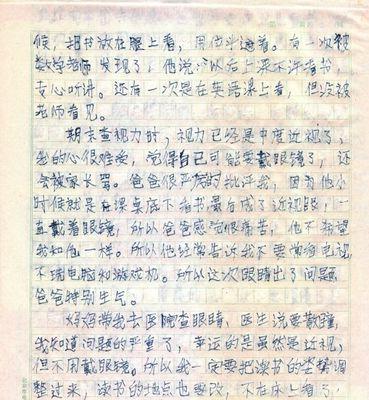 候，把书放在腿上看，用位斗遮着。有一次被
数学老师发现了，他说：以后上课不许看书，
专心听讲。还有一次是在英语课上看，但没被
老师看见。
期末查视力时，视力已经是中度近视了，
我的心很难受，觉得自己可能要戴眼镜了，还
会被家长骂。爸爸很严厉的批评我，因为他小
时候就是在课桌底下看书，最后成了近视眼，一
直戴着眼镜，所以爸爸感觉很痛苦，他不希望
我和他一样。所以他经常告诉我不要常看电视，
不玩电脑和游戏机。所以这次眼睛出了问题
爸爸特别生气。
妈妈带我去医院查眼睛，医生说要散瞳，
我知道问题的严重了，幸运的是虽然是近视，
但不用戴眼镜。所以我一定要把读书的姿势调
整过来，读书的地点也要改，不在床上看了，